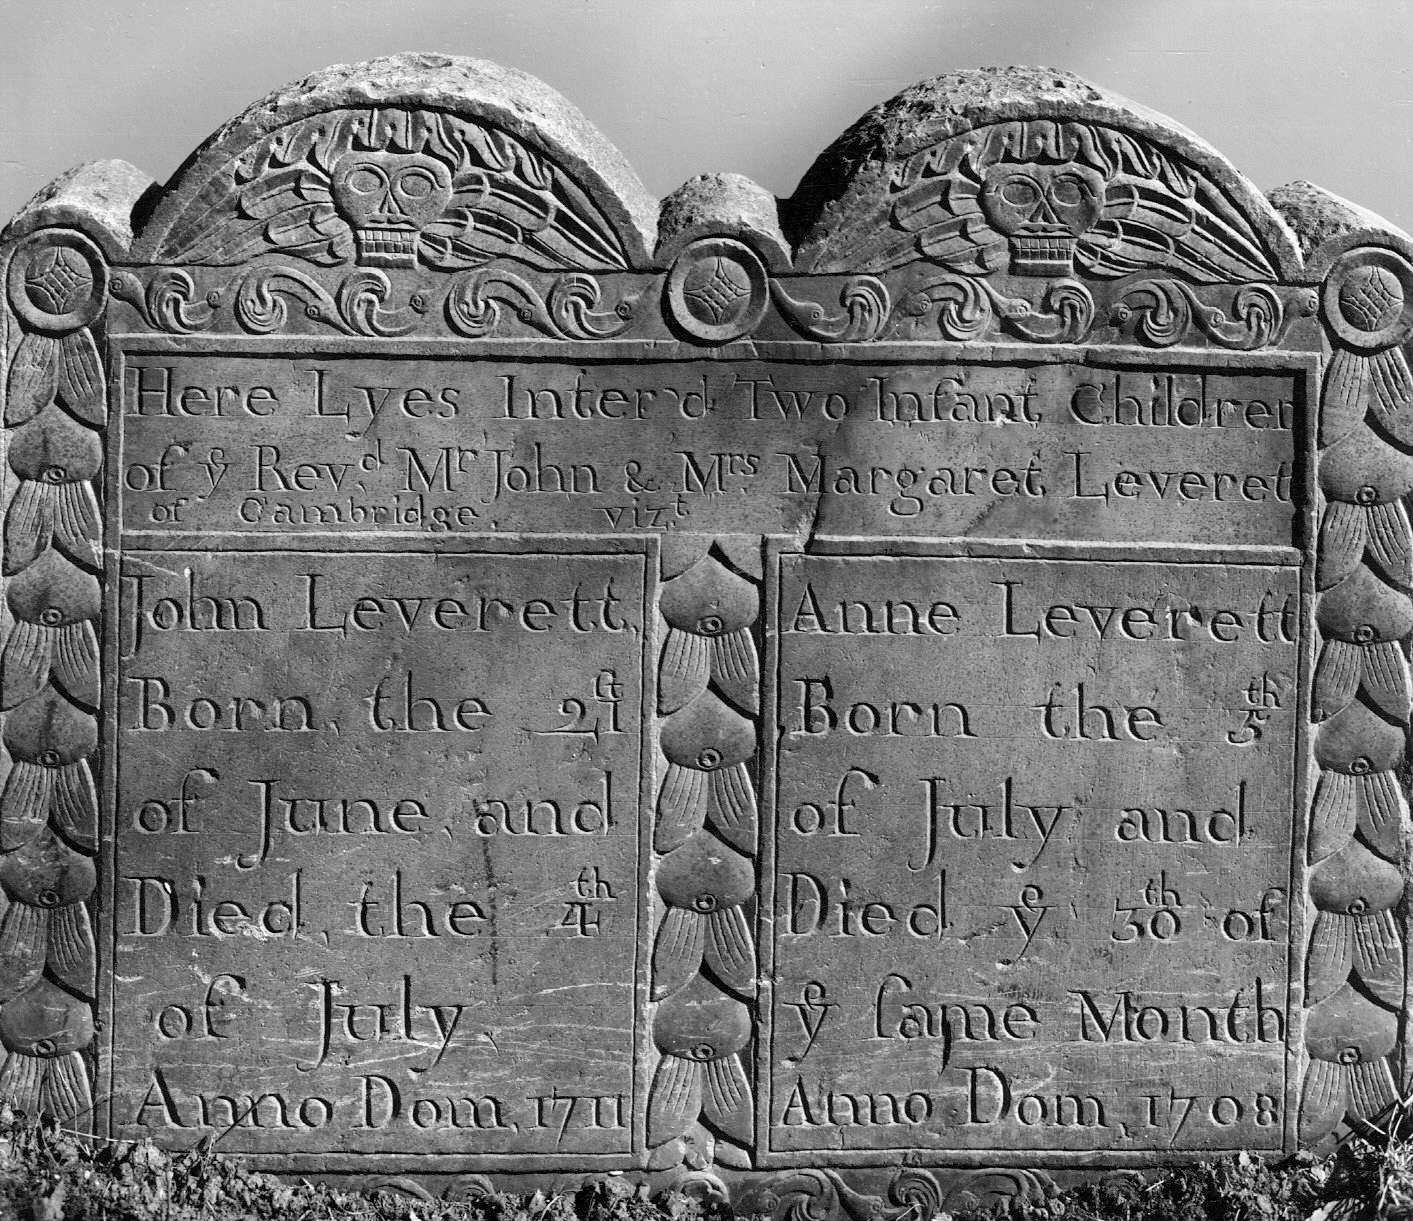 Here Lyes Inter'd Two Infant Children
of yͤ Revᵈ. Mʳ John & Mʳˢ Margaret Leveret
of Cambridge vizᵗ.
John Leverett.
Born, the 21ˢᵗ
of June, and
Died, the 4ᵗʰ
of July
Anno Dom, 1711
Anne Leverett
Born the 5ᵗʰ
of July and
Died yͤ 30ᵗʰ of
yͤ ſame Month
Anno Dom, 1708